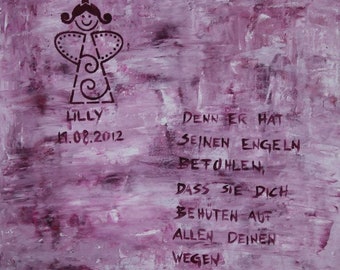 LILLY
19.08.2012
DENN ER HAT
SEINEN ENGELN
BEFOHLEN,
DASS SIE DICH
BEHÜTEN AUF
ALLEN DEINEN
WEGEN